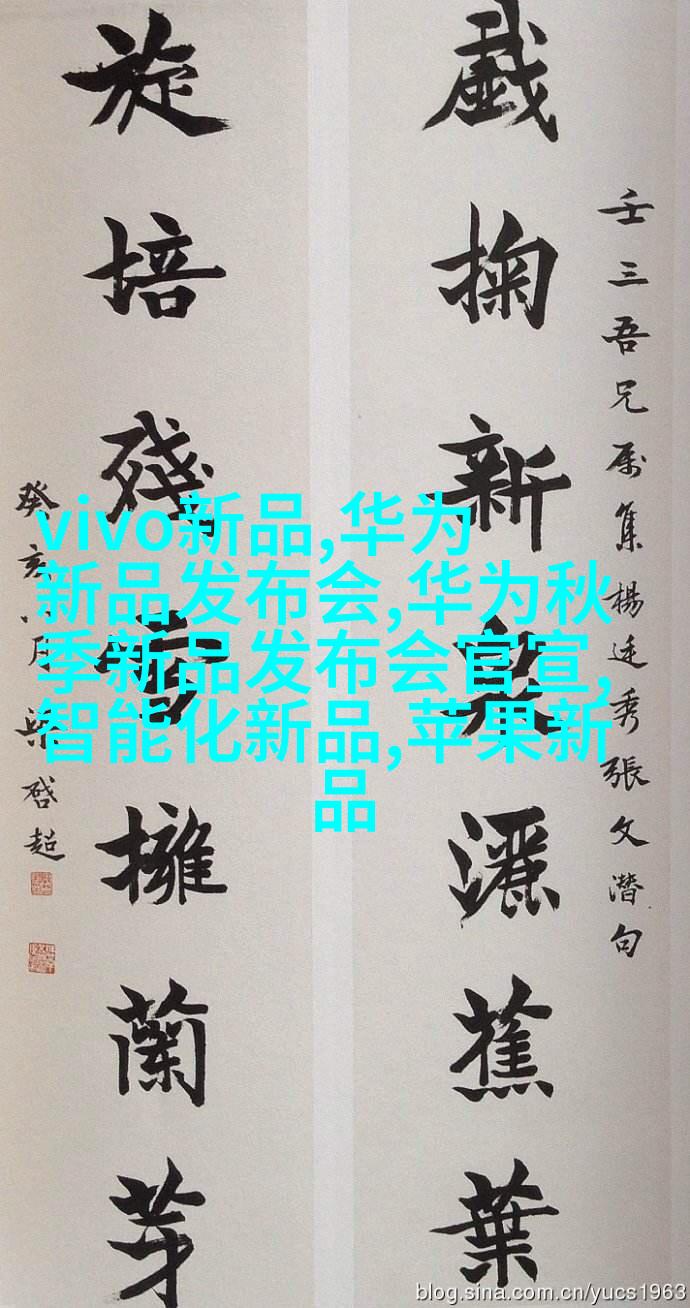 戲掬新灑蕉葉
壬三吾兄属集楊廷秀張文潛句
旋培殘擁蘭芽
癸亥八月梁啓超
vivo新品,华为
新品发布会,华为秋
季新品发布会官宣,
智能化新品,苹果新
品
blog.sina.com.cn/yucs1963